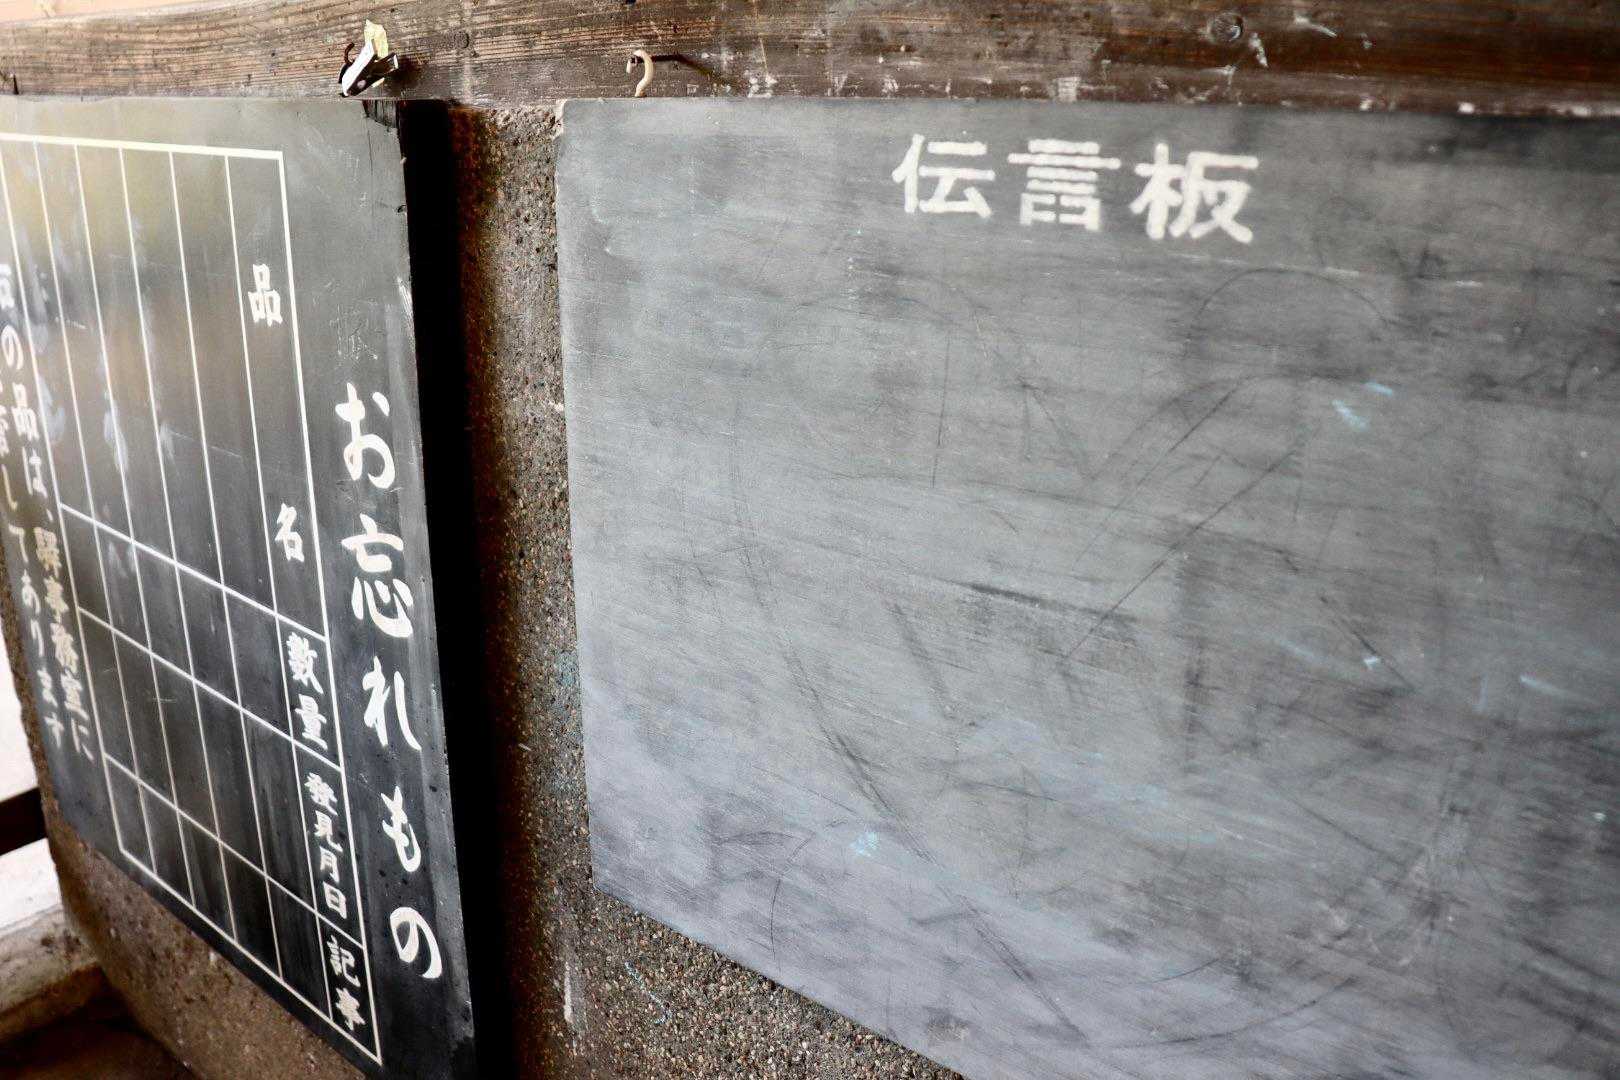 伝言板
お忘れもの
品名
数量
發見月日
記事
の品は、驛事務室に
してあります